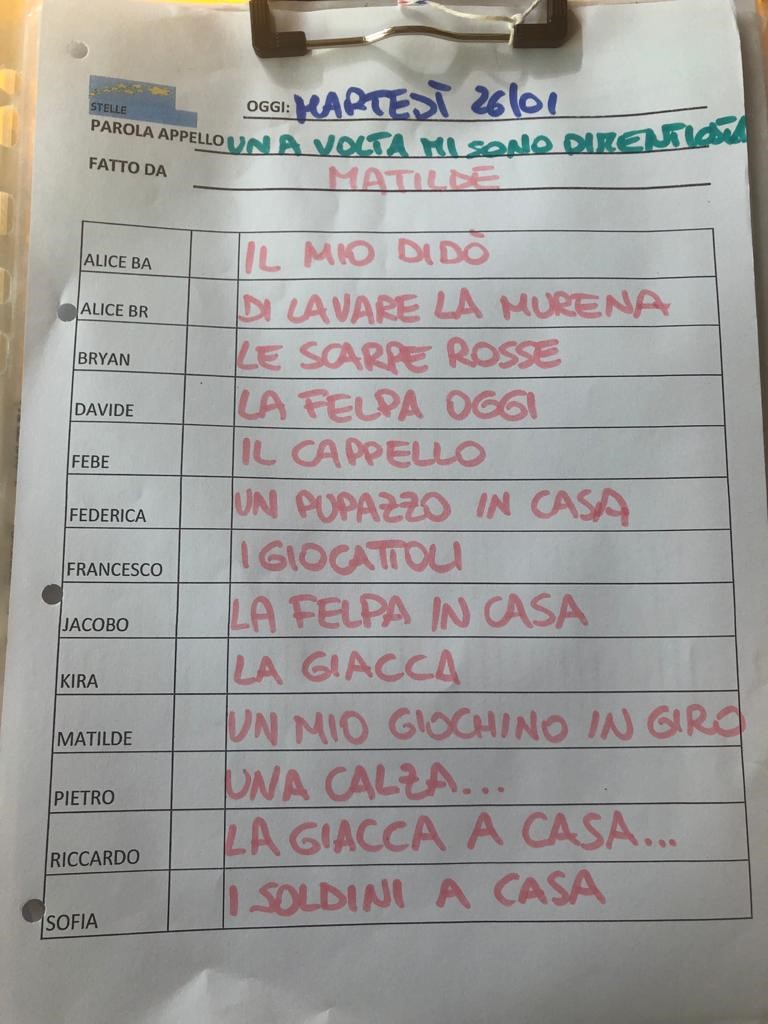 STELLE
OGGI: MARTEDÌ 26/01
PAROLA APPELLO UNA VOLTA MI SONO DIMENTICATA
FATTO DA MATILDE
ALICE BA IL MIO DIDÒ
ALICE BR DI LAVARE LA MURENA
BRYAN LE SCARPE ROSSE
DAVIDE LA FELPA OGGI
FEBE IL CAPPELLO
FEDERICA UN PUPAZZO IN CASA
FRANCESCO I GIOCATTOLI
JACOBO LA FELPA IN CASA
KIRA LA GIACCA
MATILDE UN MIO GIOCHINO IN GIRO
PIETRO UNA CALZA...
RICCARDO LA GIACCA A CASA...
SOFIA I SOLDINI A CASA